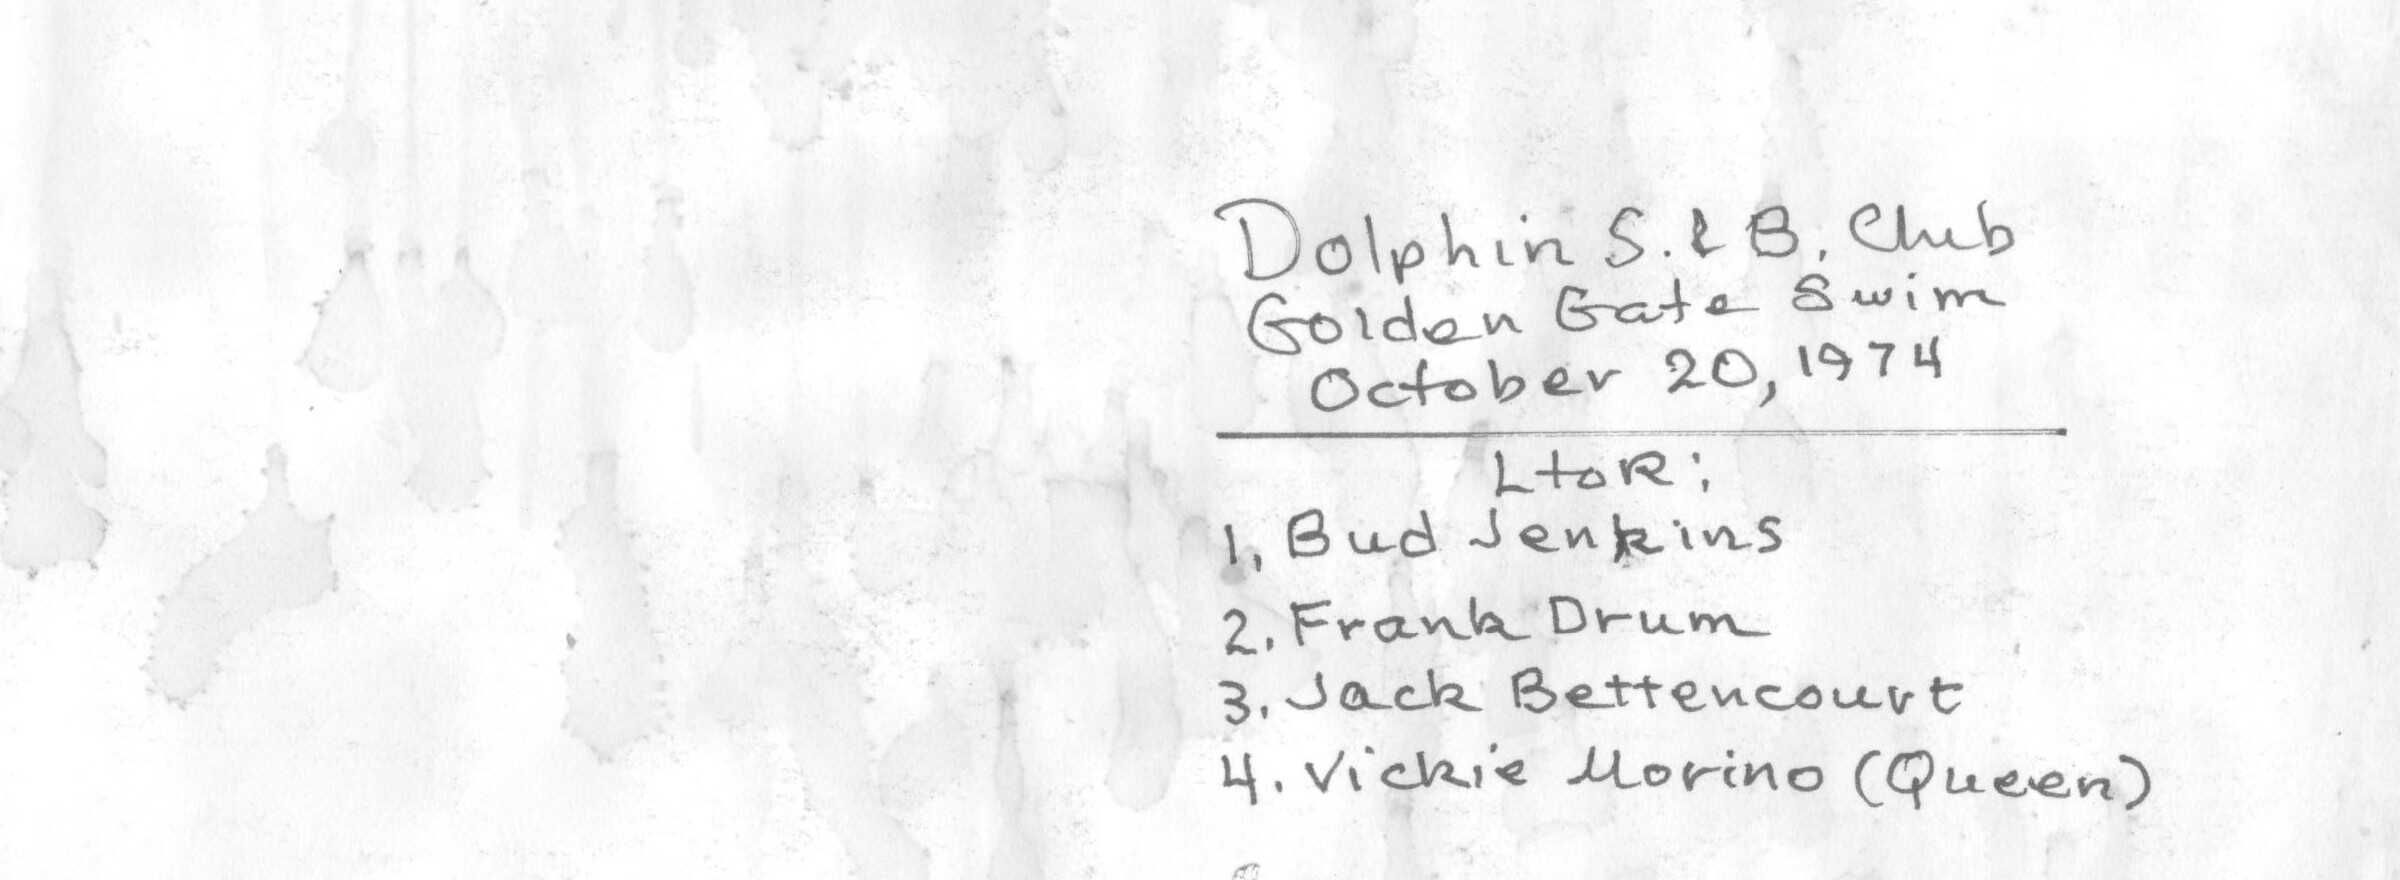 Dolphin S. & B. Club
Golden Gate Swim
October 20, 1974
L to R:
1. Bud Jenkins
2. Frank Drum
3. Jack Bettencourt
4. Vickie Morino (Queen)